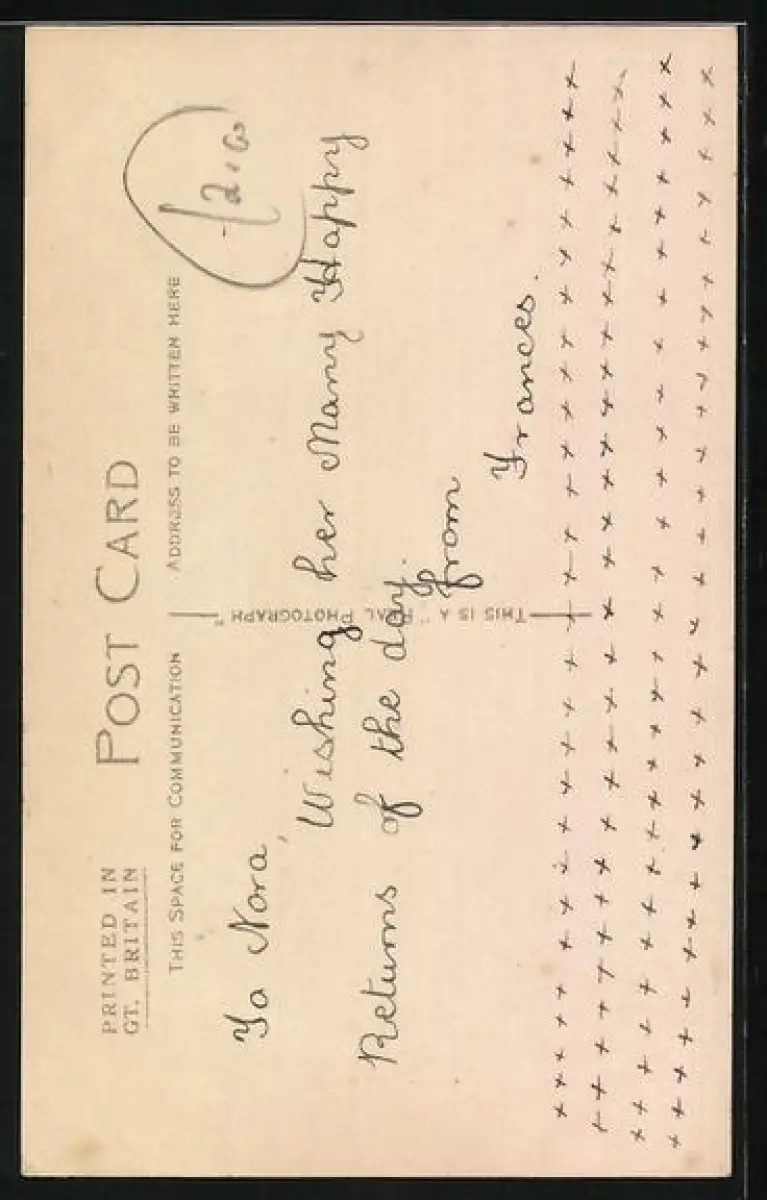 PRINTED IN
GT. BRITAIN
POST CARD
THIS SPACE FOR COMMUNICATION
ADDRESS TO BE WRITTEN HERE
THIS IS A "REAL PHOTOGRAPH"
To Nora,
Wishing her Many Happy
Returns of the day.
from
Frances.